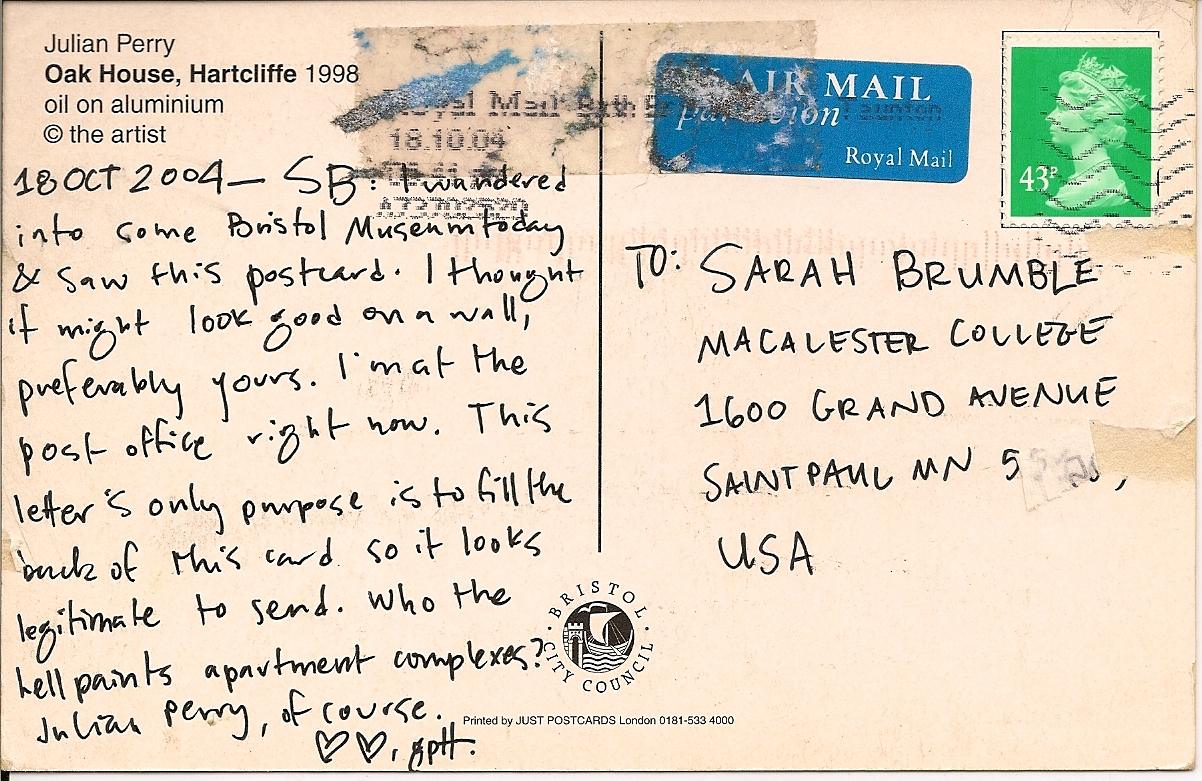 Julian Perry
Oak House, Hartcliffe 1998
oil on aluminium
© the artist
18 OCT 2004 — SB: I wandered
into some Bristol Museum today
& saw this postcard. I thought
it might look good on a wall,
preferably yours. I'm at the
post office right now. This
letter's only purpose is to fill the
back of this card so it looks
legitimate to send. Who the
hell paints apartment complexes?
Julian Perry, of course.
♡♡, gptt.
Royal Mail
18.10.04
AIR MAIL
par avion
Royal Mail
43P
TO: SARAH BRUMBLE
MACALESTER COLLEGE
1600 GRAND AVENUE
SAINT PAUL MN 5
USA
BRISTOL CITY COUNCIL
Printed by JUST POSTCARDS London 0181-533 4000